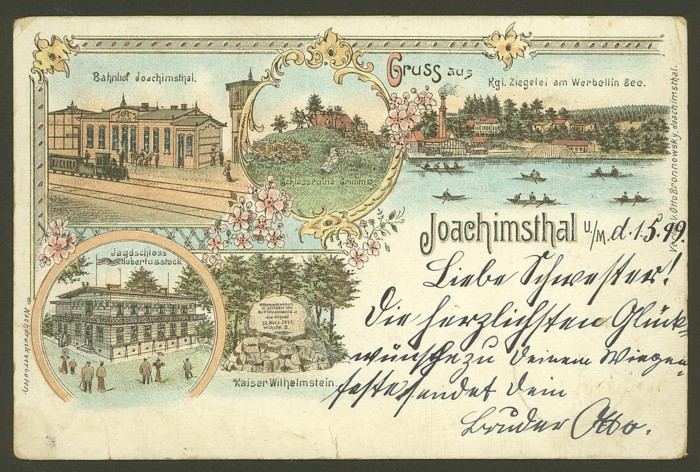 Bahnhof Joachimsthal.
Gruss aus
Kgl. Ziegelei am Werbellin See.
Schlossruine Grimnitz
Joachimsthal U/M. d. 1.5.99.
Jagdschloss
Hubertusstock
Kaiser Wilhelmstein
Liebe Schwester!
Die herzlichsten Glück-
wünsche zu Deinem Wiegen-
feste sendet Dein
Bruder Otto.
v. Otto Bronnowsky, Joachimsthal.
Nachdruck verboten.